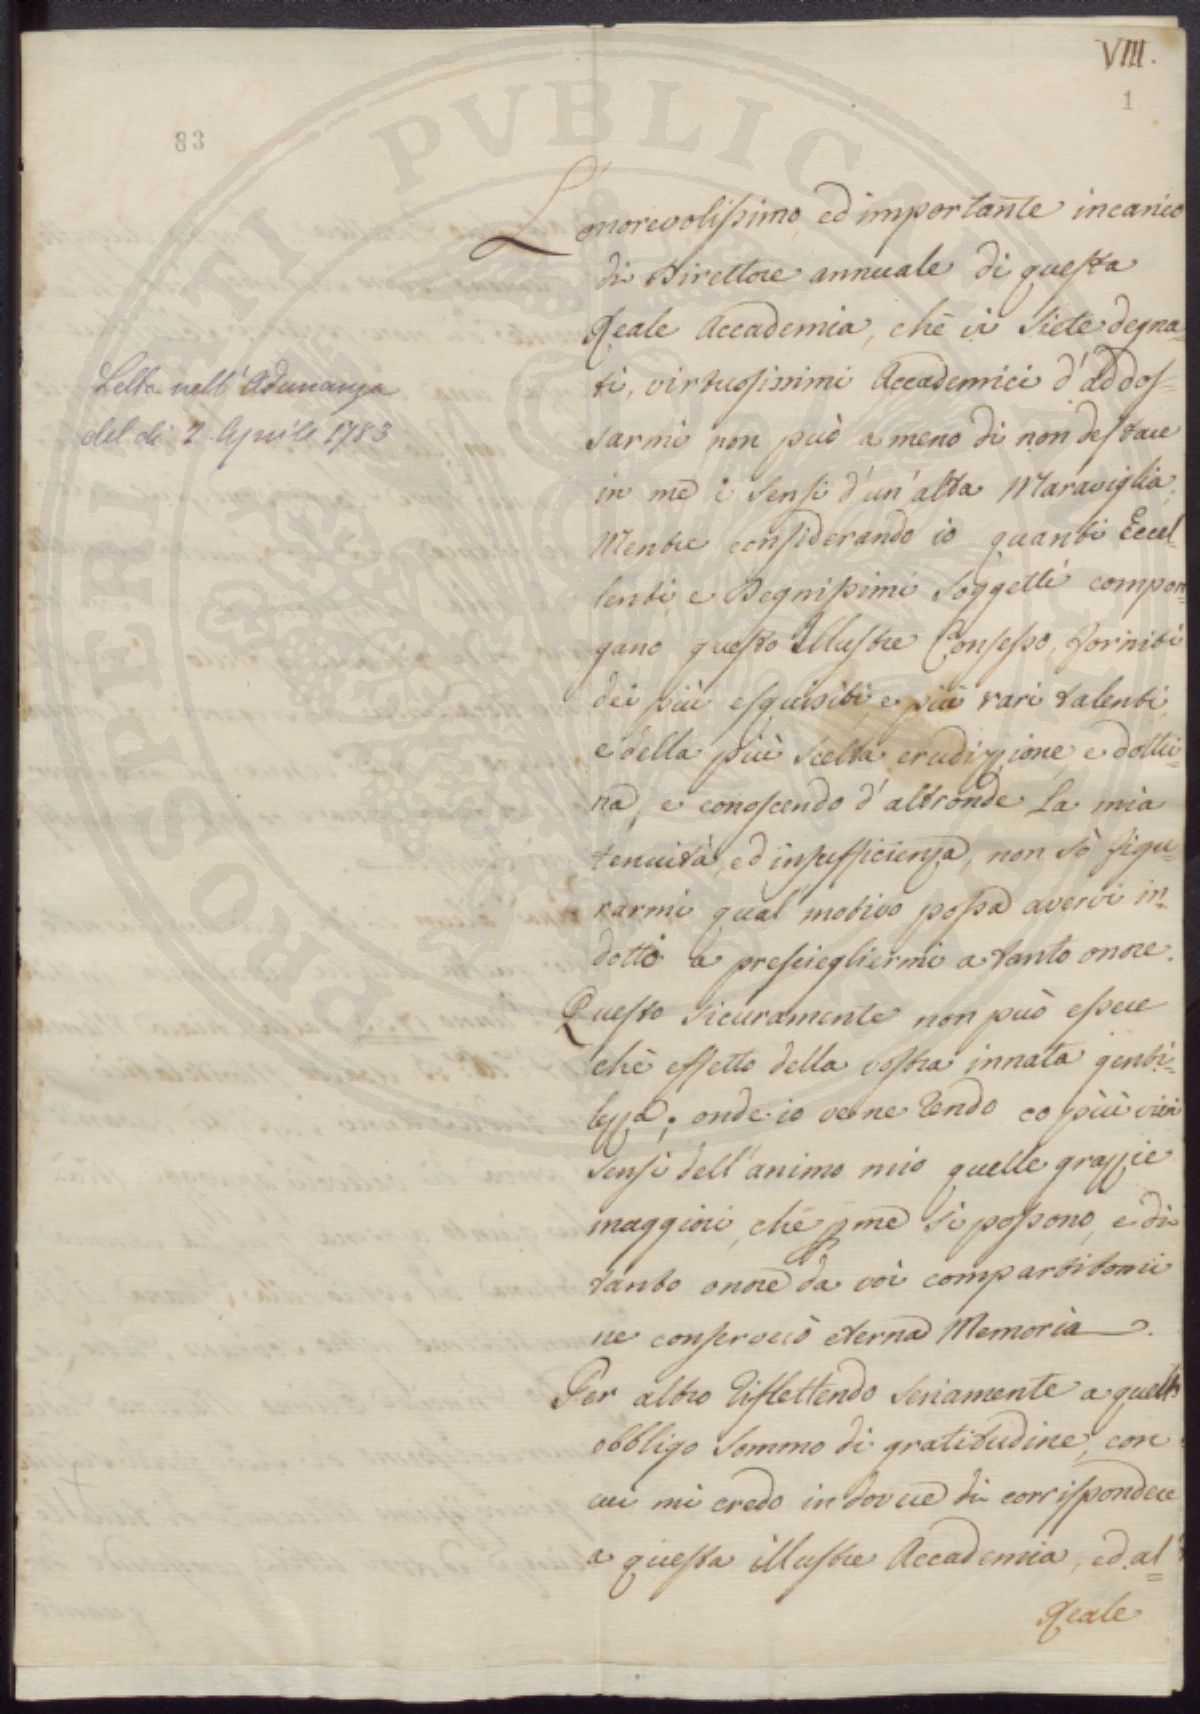 VIII.
1
83
L'onorevolissimo, ed importante incarico
di Direttore annuale di questa
Reale Accademia, che vi siete degna=
ti, virtuosissimi Accademici d'addos=
sarmi non può a meno di non destare
in me i sensi d'un'alta Maraviglia;
Mentre considerando io quanti Eccel=
lenti, e Degnissimi Soggetti compon=
gano questo Illustre Consesso, forniti
dei più esquisiti, e più rari talenti,
e della più scelta erudizzione, e dottri=
na, e conoscendo d'altronde la mia
tenuità, ed insufficienza, non sò figu=
rarmi qual motivo possa avervi in=
dotti a prescieglierni a tanto onore.
Questo sicuramente non può essere
che effetto della vostra innata genti=
lezza; onde io ve ne rendo co più vivi
sensi dell'animo mio quelle grazzie
maggiori, che p me si possono, e di
tanto onore da voi compartitomi
ne conserverò eterna Memoria.
Per altro riflettendo seriamente a quell'
obbligo sommo di gratitudine, con
cui mi credo in dovere di corrispondere
a questa illustre Accademia, ed al=
Reale
Letta nell'Adunanza
del dì 2 Aprile 1783
PROSPERITATI PUBLICAE